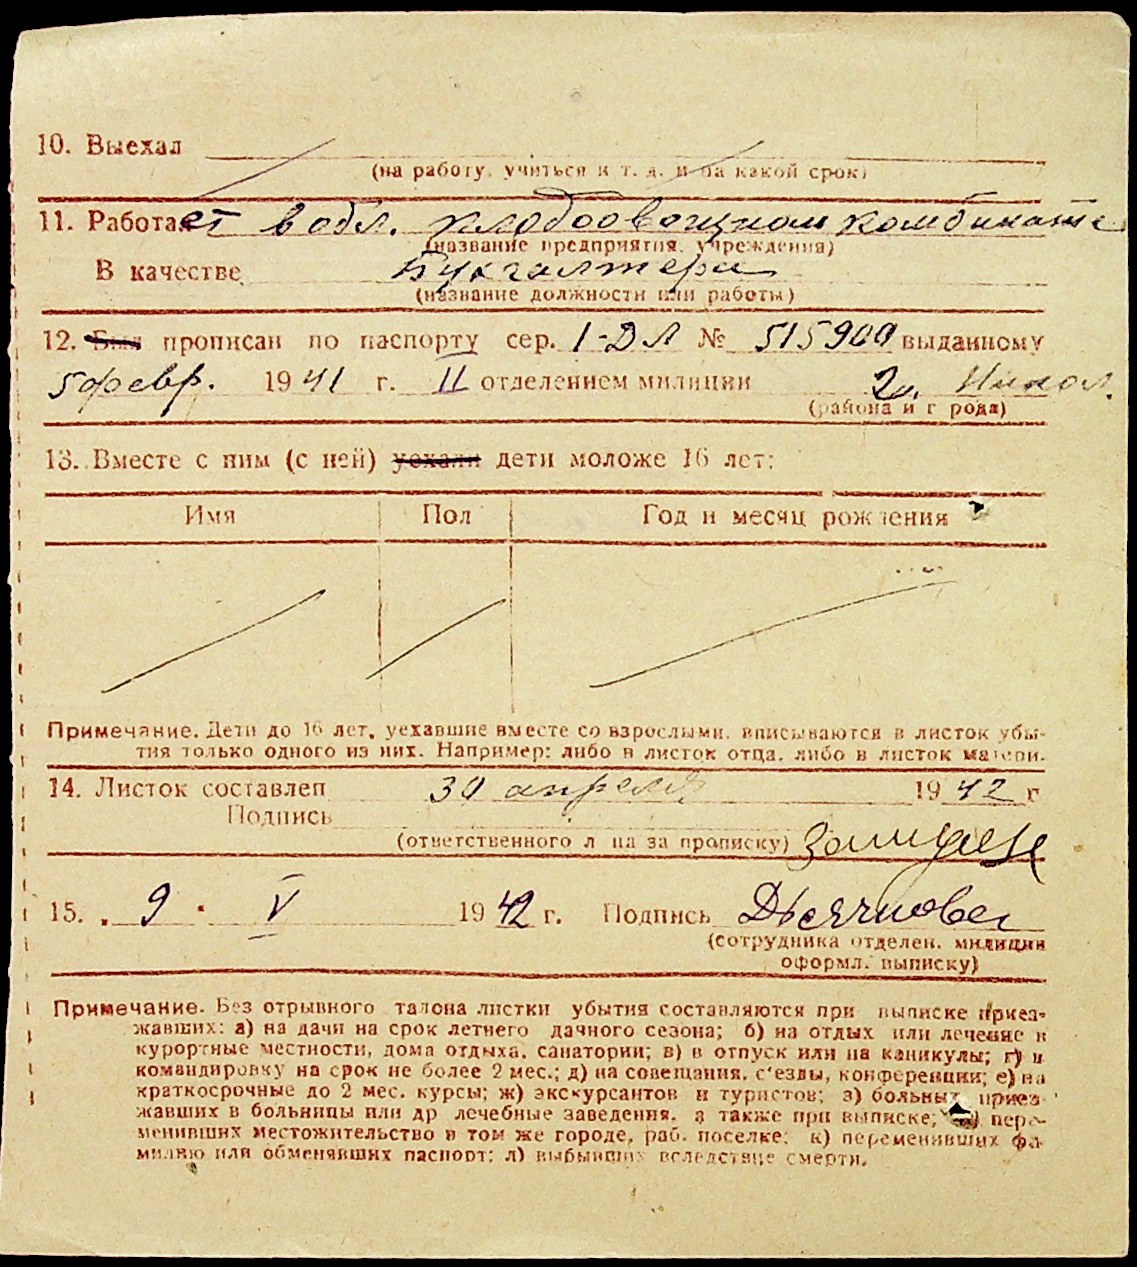 10. Выехал
(на работу, учиться и т. д. и на какой срок)
11. Работает в обл. плодоовощном комбинате
(название предприятия, учреждения)
В качестве бухгалтера
(название должности или работы)
12. Был прописан по паспорту сер. I-ДЛ № 515900 выданному
5 февр. 1941 г. II отделением милиции г. Никол.
(района и города)
13. Вместе с ним (с ней) уехали дети моложе 16 лет:
Имя Пол Год и месяц рождения
Примечание. Дети до 16 лет, уехавшие вместе со взрослыми, вписываются в листок убы-
тия только одного из них. Например: либо в листок отца, либо в листок матери.
14. Листок составлен 30 апреля 1942 г
Подпись
(ответственного лица за прописку)
15. 9 · V 1942 г. Подпись Дьячкова
(сотрудника отделен. милиции
оформл. выписку)
Примечание. Без отрывного талона листки убытия составляются при выписке приез-
жавших: а) на дачи на срок летнего дачного сезона; б) на отдых или лечение в
курортные местности, дома отдыха, санатории; в) в отпуск или на каникулы; г) в
командировку на срок не более 2 мес.; д) на совещания, с'езды, конференции; е) на
краткосрочные до 2 мес. курсы; ж) экскурсантов и туристов; з) больных, приез-
жавших в больницы или др лечебные заведения, а также при выписке; пере-
менивших местожительство в том же городе, раб. поселке; к) переменивших фа-
милию или обменявших паспорт; л) выбывших вследствие смерти.